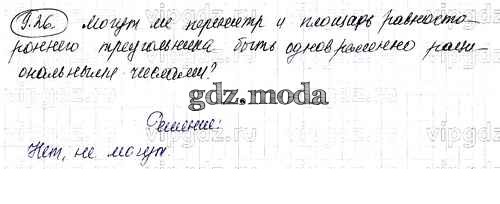 П.26. Могут ли периметр и площадь равносто-
роннего треугольника быть одновременно раци-
ональными числами?
gdz.moda
Решение:
Нет, не могут.
vipgdz.ru
vipgdz.ru
vipgdz.ru